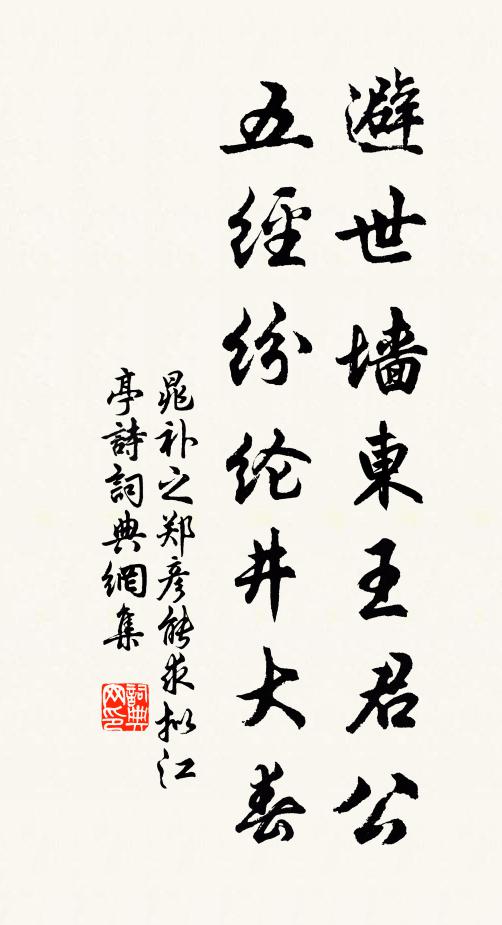 避世墙東王君公
五經纷纶井大春
晁补之郑彦能求拟江
亭詩詞典網集
詞典网印